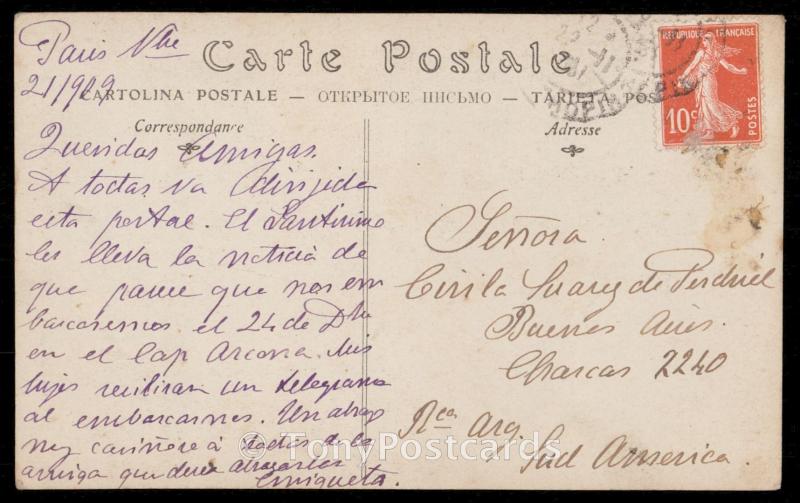 Carte Postale
CARTOLINA POSTALE — ОТКРЫТОЕ ПИСЬМО — TARJETA POS
Correspondance
Adresse
REPUBLIQUE FRANÇAISE
10c
POSTES
Paris Nbe
21/909
Queridas Amigas.
A todas va dirijida
esta postal. El Santisimo
les lleva la noticia de
que parece que nos em
barcaremos el 24 de Dbre
en el Cap Arcona. Mis
hijos recibiran un telegrama
al embarcarnos. Un abrazo
muy cariñoso á todas de la
amiga que desea abrazarlas
Enriqueta.
Señora
Cirila Suarez de Perdriel
Buenos Aires.
Charcas 2240
Rca Arg.
Sud America.
© TonyPostcards